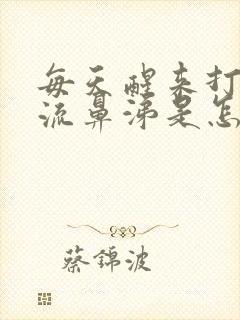 每天醒来打
流鼻涕是怎
蔡锦波